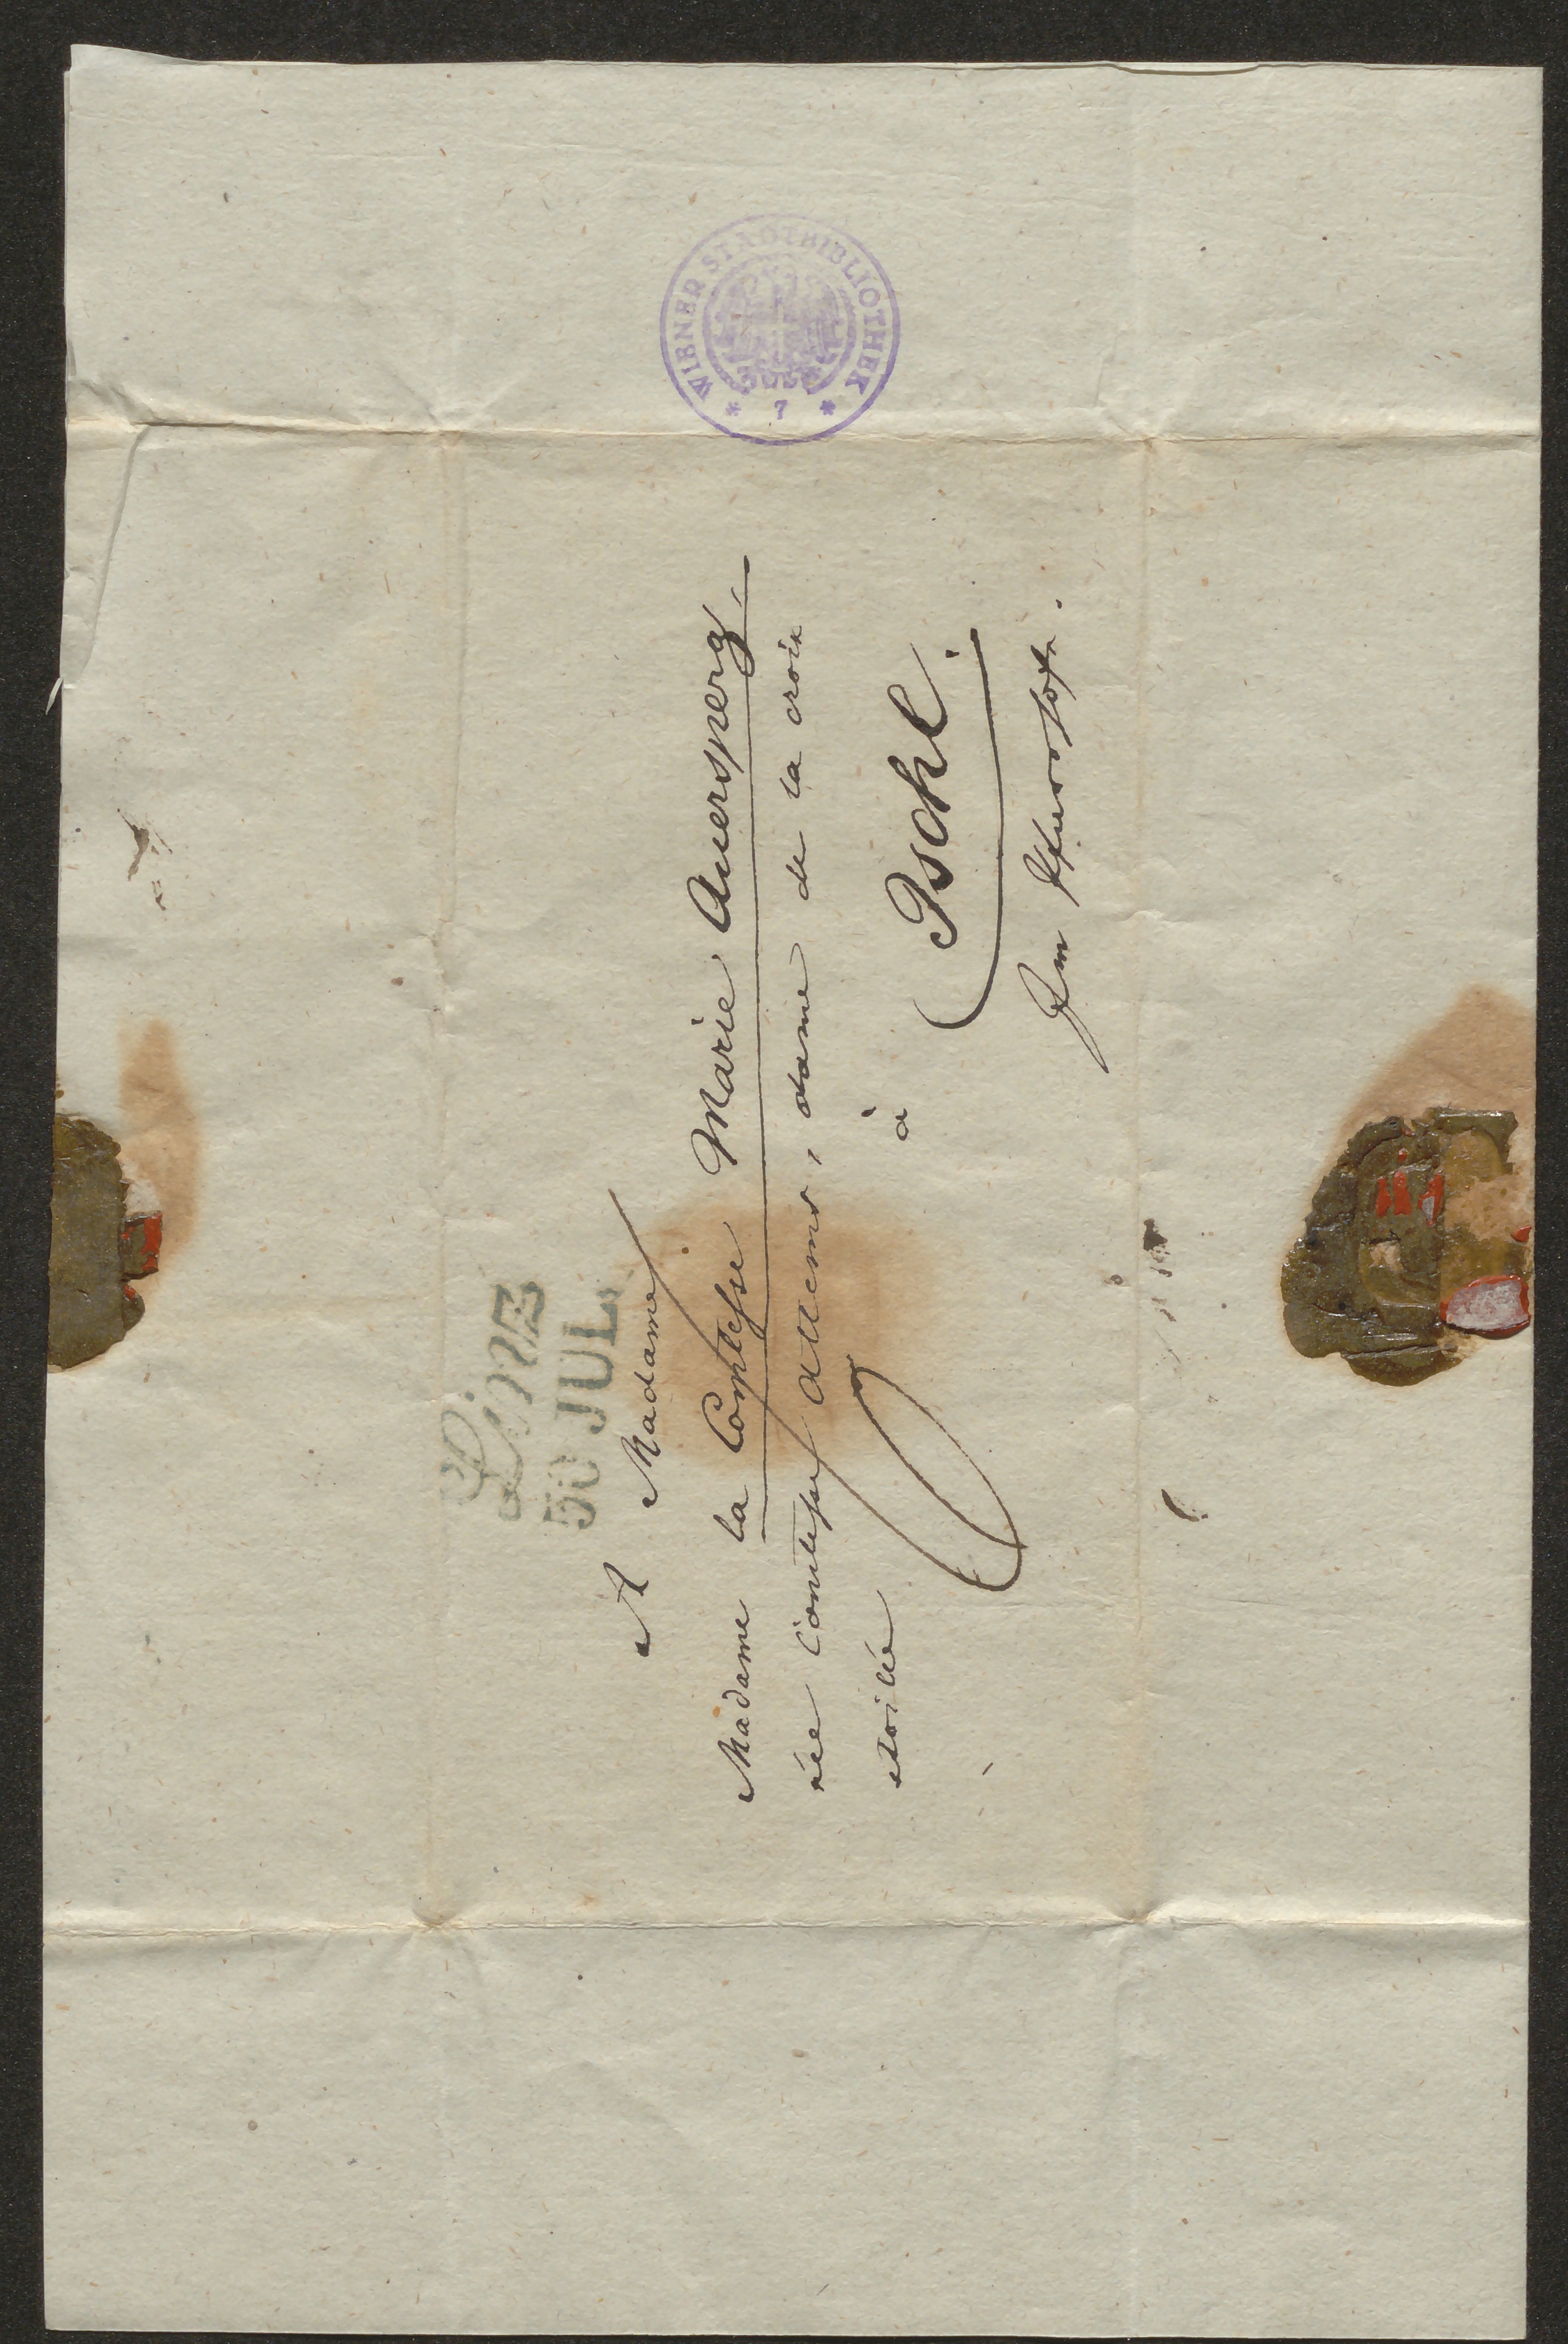 WIENER STADTBIBLIOTHEK
* 7 *
Linz
30 JUL.
A Madame
Madame la Comtesse Marie Auersperg,
née Comtesse Attems, dame de la croix
étoilée
à Ischl.
Im